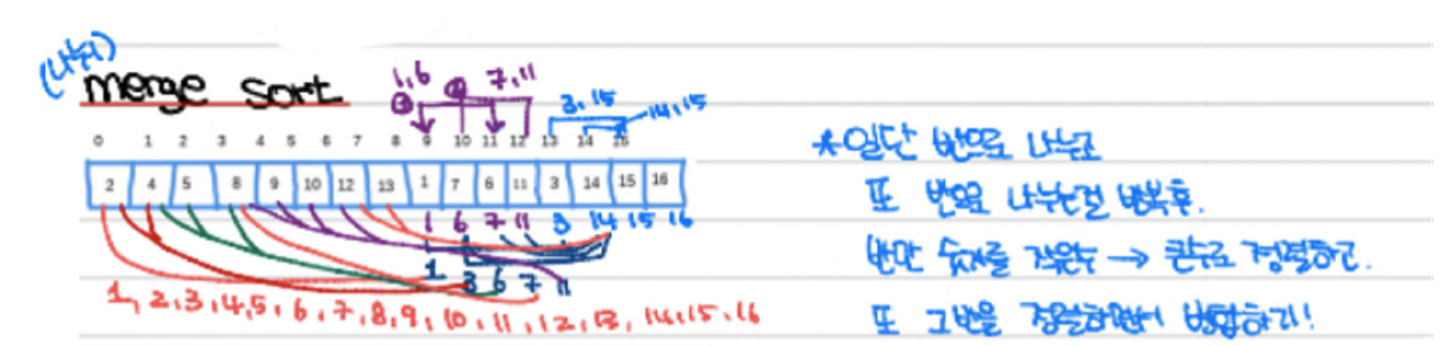 (나누기)
merge sort
1,6 7,11
3,15 14,15
0 1 2 3 4 5 6 7 8 9 10 11 12 13 14 15
2 4 5 8 9 10 12 13 1 7 6 11 3 14 15 16
1 6 7 11 3 14 15 16
1 3 6 7 11
1, 2, 3, 4, 5, 6, 7, 8, 9, 10, 11, 12, 13, 14, 15, 16
*일단 반으로 나누고
또 반으로 나누는걸 반복후.
반만 숫자를 작은수 → 큰수로 정렬하고.
또 그반을 정렬하면서 병합하기!